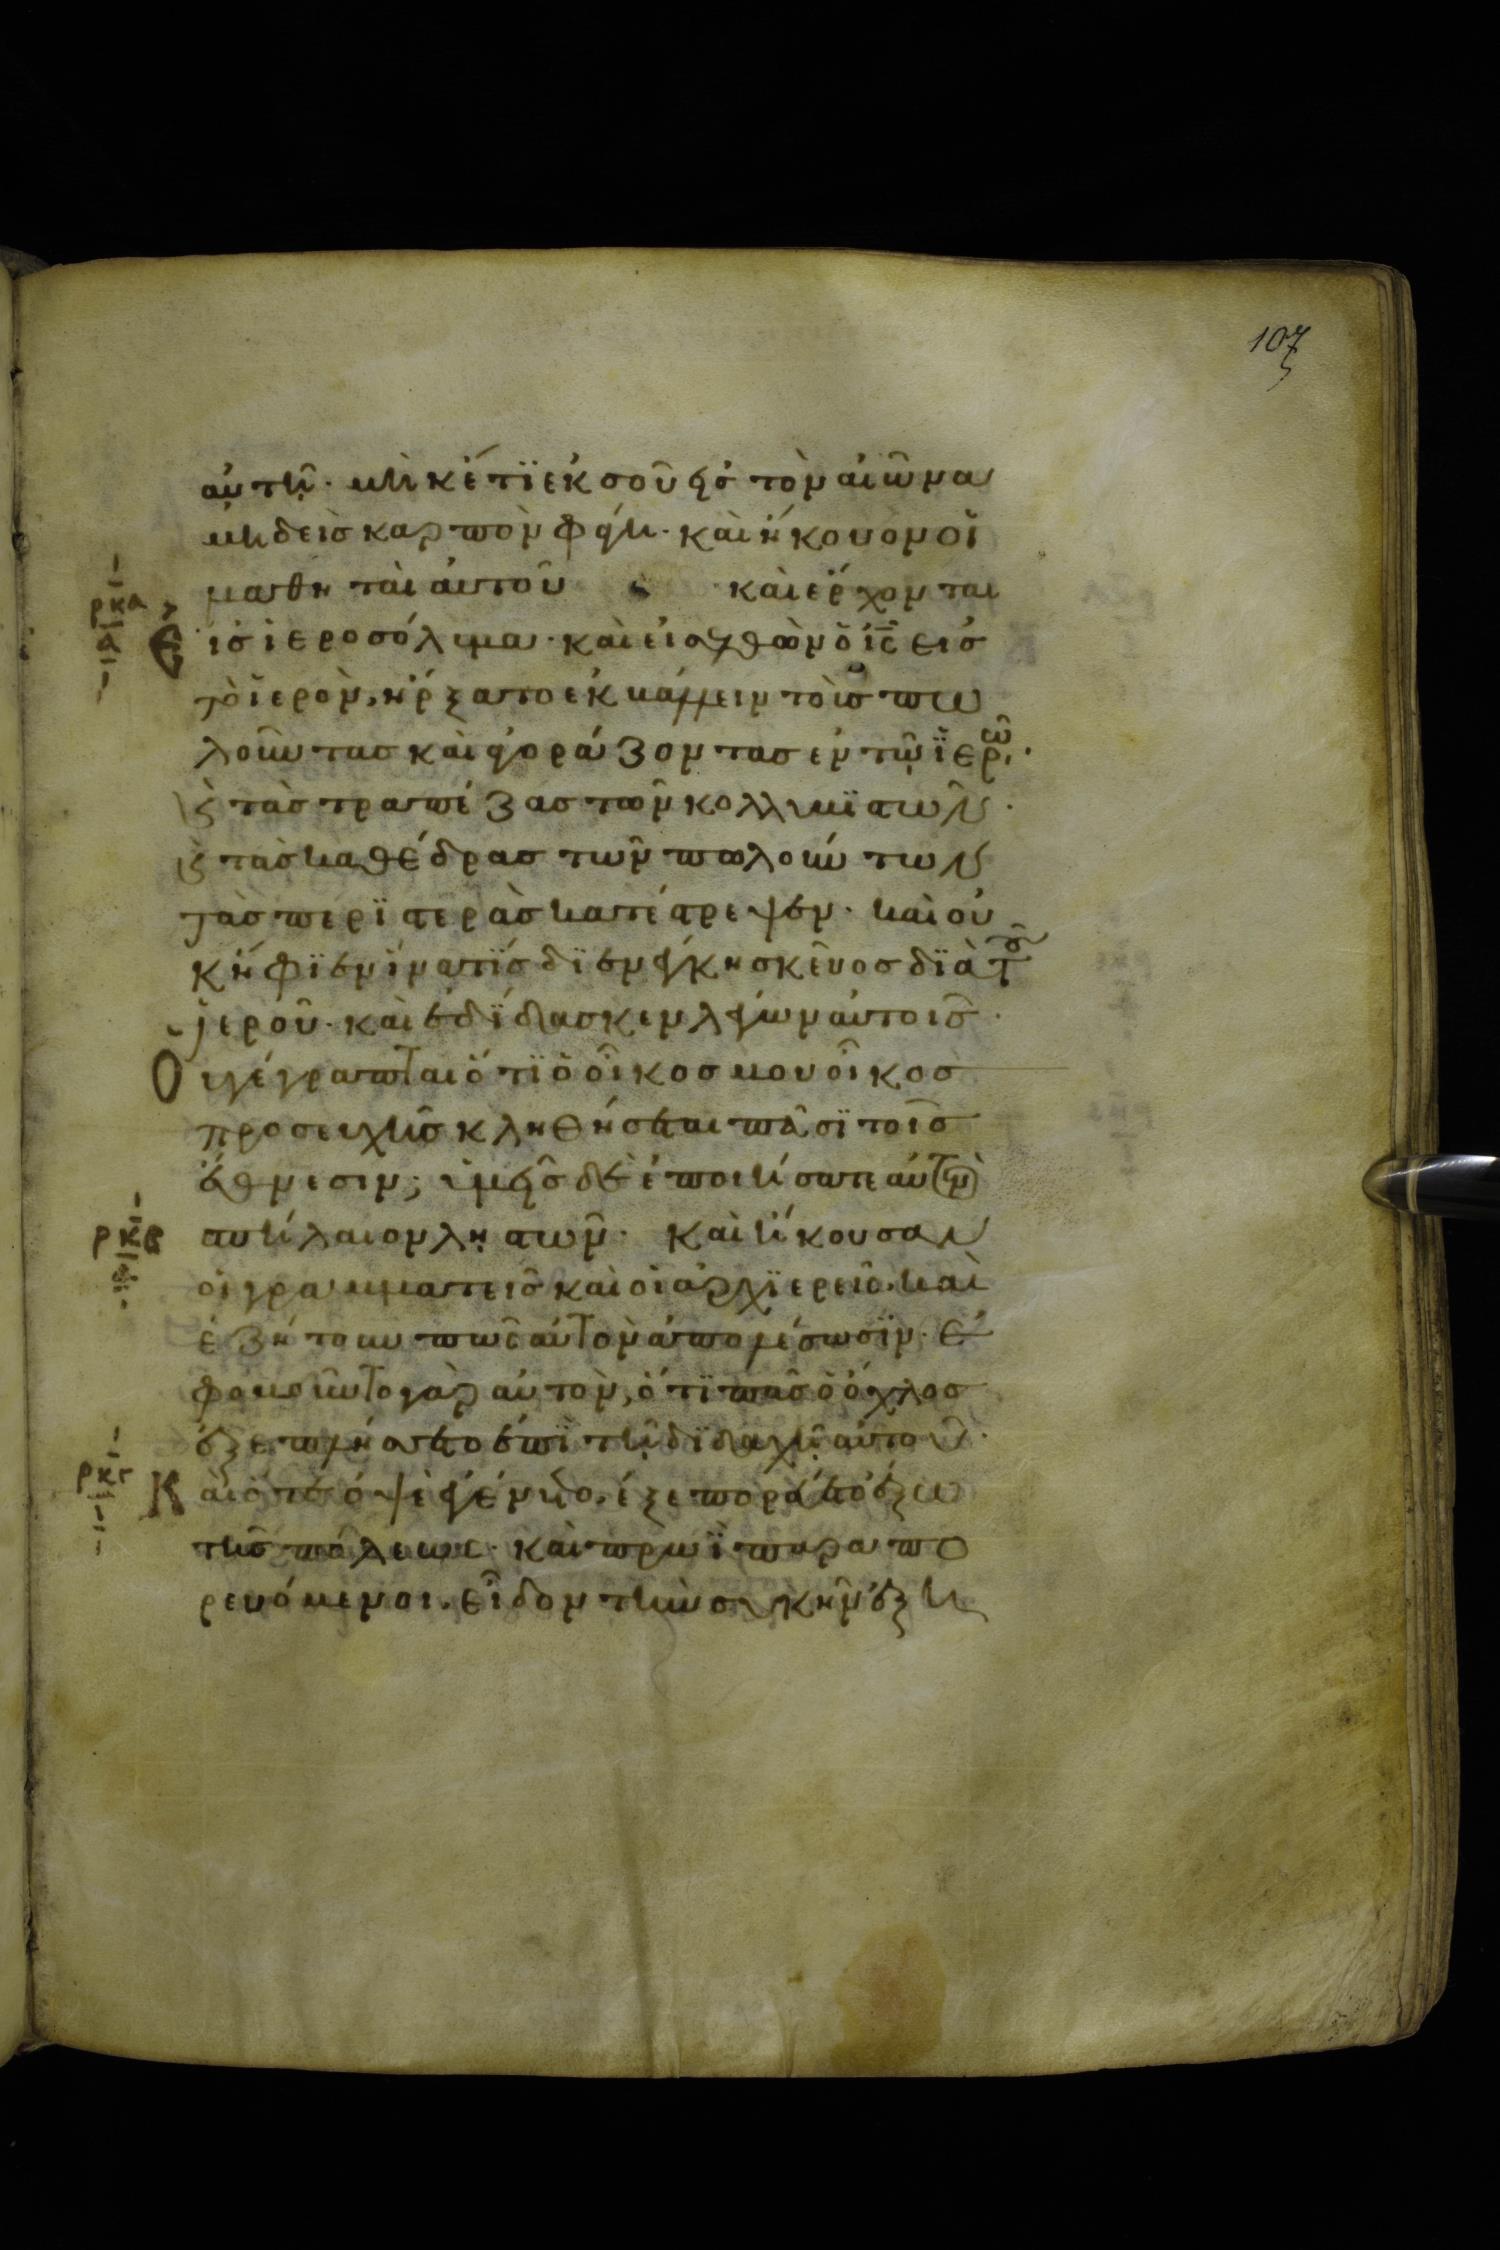 107
αὐτῆ· μηκέτι ἐκ σοῦ εἰς τὸν αἰῶνα
μηδεὶς καρπὸν φάγη· καὶ ἤκουον οἱ
μαθηταὶ αὐτοῦ καὶ ἔρχονται
ρκα
Εἰς ἱεροσόλυμα· καὶ εἰσελθὼν ὁ ις εἰς
τὸ ἱερὸν, ἤρξατο ἐκβάλλειν τοὺς πω
λοῦντας καὶ ἀγοράζοντας ἐν τῷ ἱερῶ·
ϗ τὰς τραπέζας τῶν κολλυβιστῶν·
ϗ τὰς καθέδρας τῶν πωλούντων
τὰς περιστερὰς κατέστρεψεν· καὶ οὐ
κ ἤφιεν ἵνα τίς διενέγκη σκεῦος διὰ τοῦ
ἱεροῦ· καὶ ἐδίδασκεν λέγων αὐτοῖς·
Οὐ γέγραπται ὅτι ὁ οἶκος μου οἶκος
προσευχῆς κληθήσεται πᾶσι τοῖς
ἔθνεσιν; ὑμεῖς δὲ ἐποιήσατε αὐτὸν
ρκβ
σπήλαιον ληστῶν· καὶ ἤκουσαν
οἱ γραμματεῖς καὶ οἱ ἀρχιερεῖς, καὶ
ἐζήτουν πῶς αὐτὸν ἀπολέσωσιν· ἐ
φοβοῦντο γὰρ αὐτὸν, ὅτι πᾶς ὁ ὄχλος
ἐξεπλήσσετο ἐπὶ τῆ διδαχῆ αὐτοῦ·
ρκγ
Καὶ ὅτε ὀψὲ ἐγένετο, ἐξεπορεύετο ἔξω
τῆς πόλεως· καὶ πρωῒ παραπο
ρευόμενοι, εἶδον τὴν συκῆν ἐξη